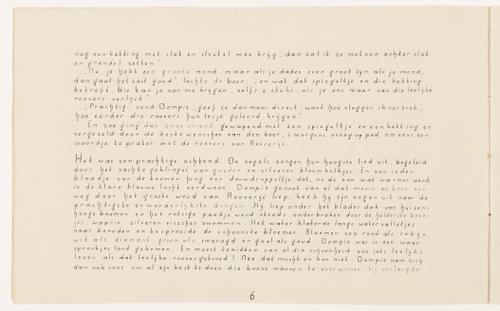 nog een ketting met slot en sleutel mee krijg, dan zal ik ze meteen achter slot
en grendel zetten".
„Nu, je hebt een groote mond, maar als je daden even groot zijn als je mond,
dan gaat het vast goed", lachte de boer, „en wat dat spiegeltje en die ketting
betreft, die kan je van me krijgen, zelfs 2 stuks, als je ons maar van die leelijke
roovers verlost".
„Prachtig, vond Dompie, „geef ze dan maar direct, want hoe vlugger ik vertrek,
hoe eerder die roovers hun lesje geleerd krijgen".
En zoo ging dan onze vriend, gewapend met een spiegeltje en een ketting en
vergezeld door de beste wenschen van den boer, 's morgens vroeg op pad om eens een
woordje te praten met de roovers van Rooverije.
Het was een prachtige ochtend. De vogels zongen hun hoogste lied uit, begeleid
door het zachte geklingel van gouden en zilveren bloemklokjes. En van ieder
blaadje van de boomen hing een dauwdruppeltje, dat, nu de zon wat warmer werd,
in de klare blauwe lucht verdween. Dompie genoot van al dat moois en
weg door het groote woud van Rooverije liep, keek hij zijn oogen uit naar de
prachtigste en wonderlijkste dingen. Hij liep onder het blader dak van huizen-
hooge boomen en het rotsige paadje werd steeds onderbroken door de helderste beek-
jes, waarin zilveren visschen zwommen. Het water klaterde langs watervalletjes
naar beneden en besproeide de schoonste bloemen. Bloemen zoo rood als robijn,
wit als diamant, groen als smaragd en geel als goud. Dompie was in een waar
sprookjes land gekomen. En moest temidden van al die schoonheid zoo iets leelijks
leven als dat leelijke rooversgebroed? Nee dat mocht en kon niet. Dompie nam zich
dan ook voor om al zijn best te doen die booze mannen te overwinnen. Hij verlangde
6